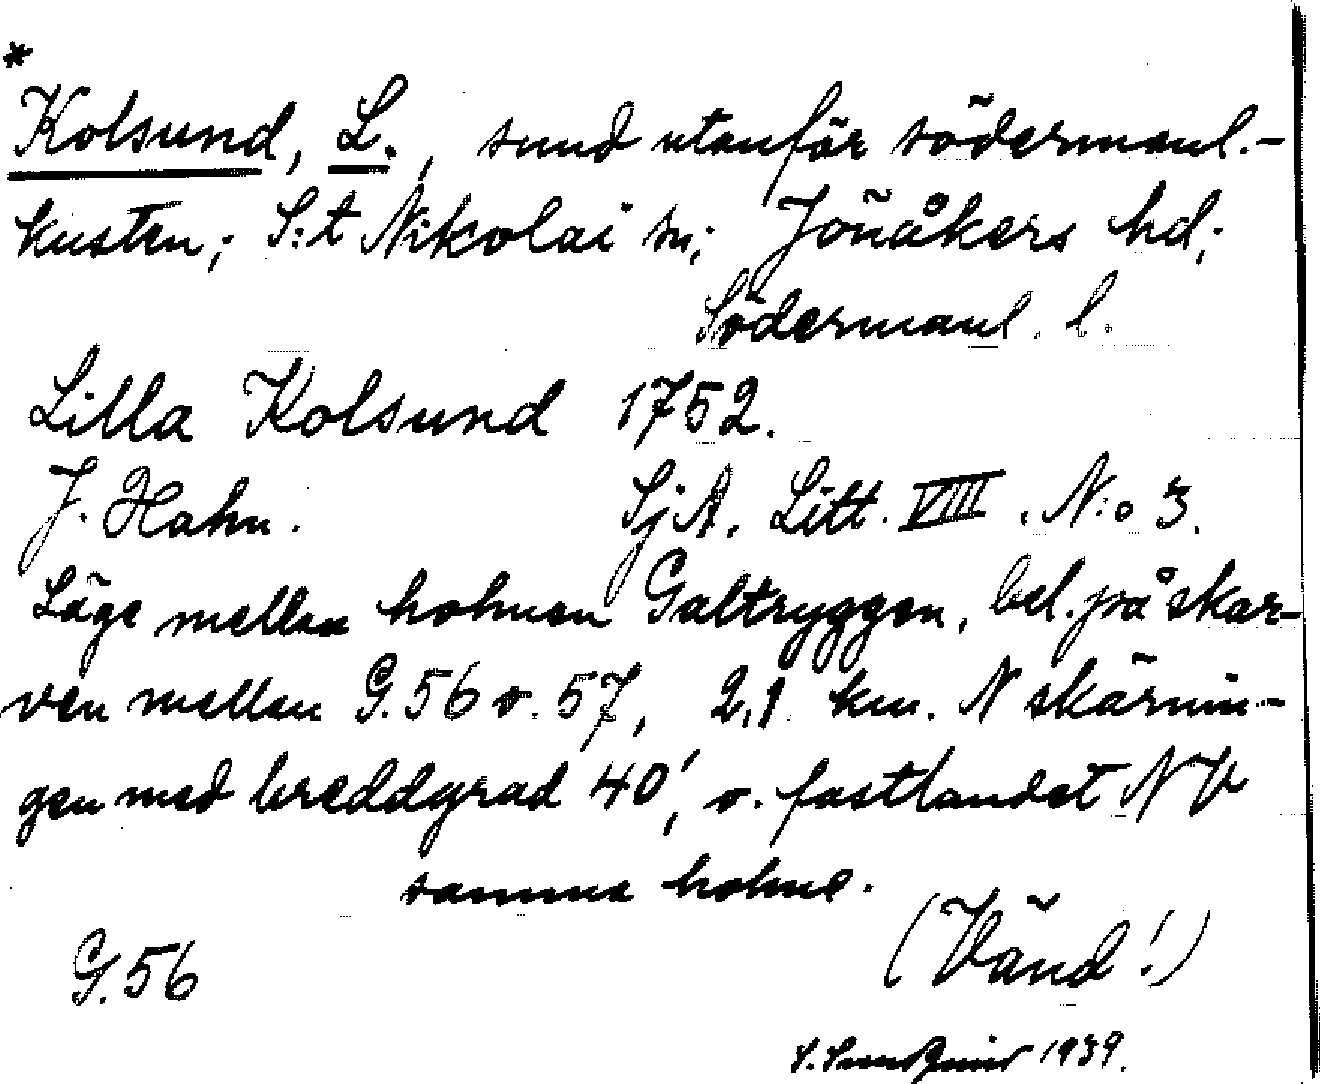 *
Kolsund, L., sund utanför södermanl.-
kusten; S:t Nikolai sn; Jönåkers hd;
Södermanl. l.
Lilla Kolsund 1752.
J. Hahn. SjA. Litt. VIII. N:o 3.
Läge mellan holmen Galtryggen, bel. på skar-
ven mellan G.56 o. 57, 2,1 km. N skärnin-
gen med breddgrad 40', o. fastlandet NV
samma holme.
(Vänd!)
G.56
1939.